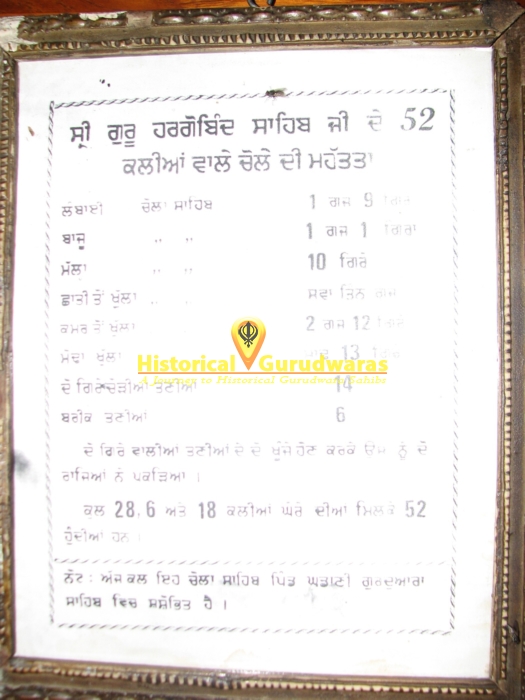 ਸ੍ਰੀ ਗੁਰੂ ਹਰਗੋਬਿੰਦ ਸਾਹਿਬ ਜੀ ਦੇ 52
ਕਲੀਆਂ ਵਾਲੇ ਚੋਲੇ ਦੀ ਮਹੱਤਤਾ
ਲੰਬਾਈ ਚੋਲਾ ਸਾਹਿਬ 1 ਗਜ 9
ਬਾਜੂ ,, ,, 1 ਗਜ 1 ਗਿਰਾ
ਮੱਲਾ ,, ,, 10 ਗਿਰੇ
ਛਾਤੀ ਤੋਂ ਖੁੱਲਾ ,, ,, ਸਵਾ ਤਿਨ ਗਜ
ਕਮਰ ਤੋਂ ਖੁੱਲਾ 2 ਗਜ 12 ਗਿਰੇ
ਖੁੱਲਾ 13
Historical Gurudwaras
A Journey to Historical Gurudwara Sahibs
ਦੋ ਤਣੀਆਂ 14
ਬਰੀਕ ਤਣੀਆਂ 6
ਦੋ ਗਿਰੇ ਵਾਲੀਆਂ ਤਣੀਆਂ ਦੇ ਦੋ ਖੂੰਜੇ ਹੋਣ ਕਰਕੇ ਨੂੰ ਦੋ
ਰਾਜਿਆਂ ਨੇ ਪਕੜਿਆ ।
ਕੁਲ 28, 6 ਅਤੇ 18 ਕਲੀਆਂ ਘੇਰੇ ਦੀਆਂ ਮਿਲਕੇ 52
ਹੁੰਦੀਆਂ ਹਨ ।
ਨੋਟ : ਅੱਜ ਕਲ ਇਹ ਚੋਲਾ ਸਾਹਿਬ ਪਿੰਡ ਘਡਾਣੀ ਗੁਰਦੁਆਰਾ
ਸਾਹਿਬ ਵਿਚ ਸਸ਼ੋਭਿਤ ਹੈ ।